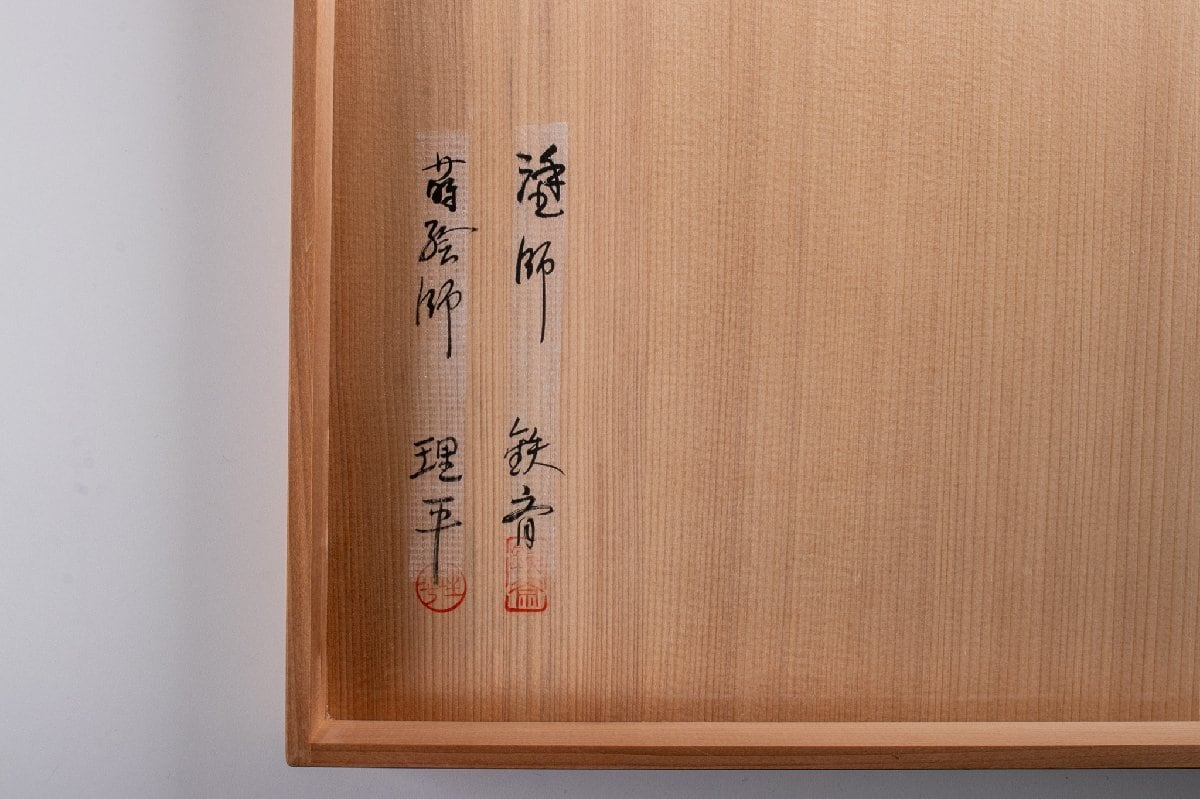 塗師 鉄斉
蒔絵師 理平